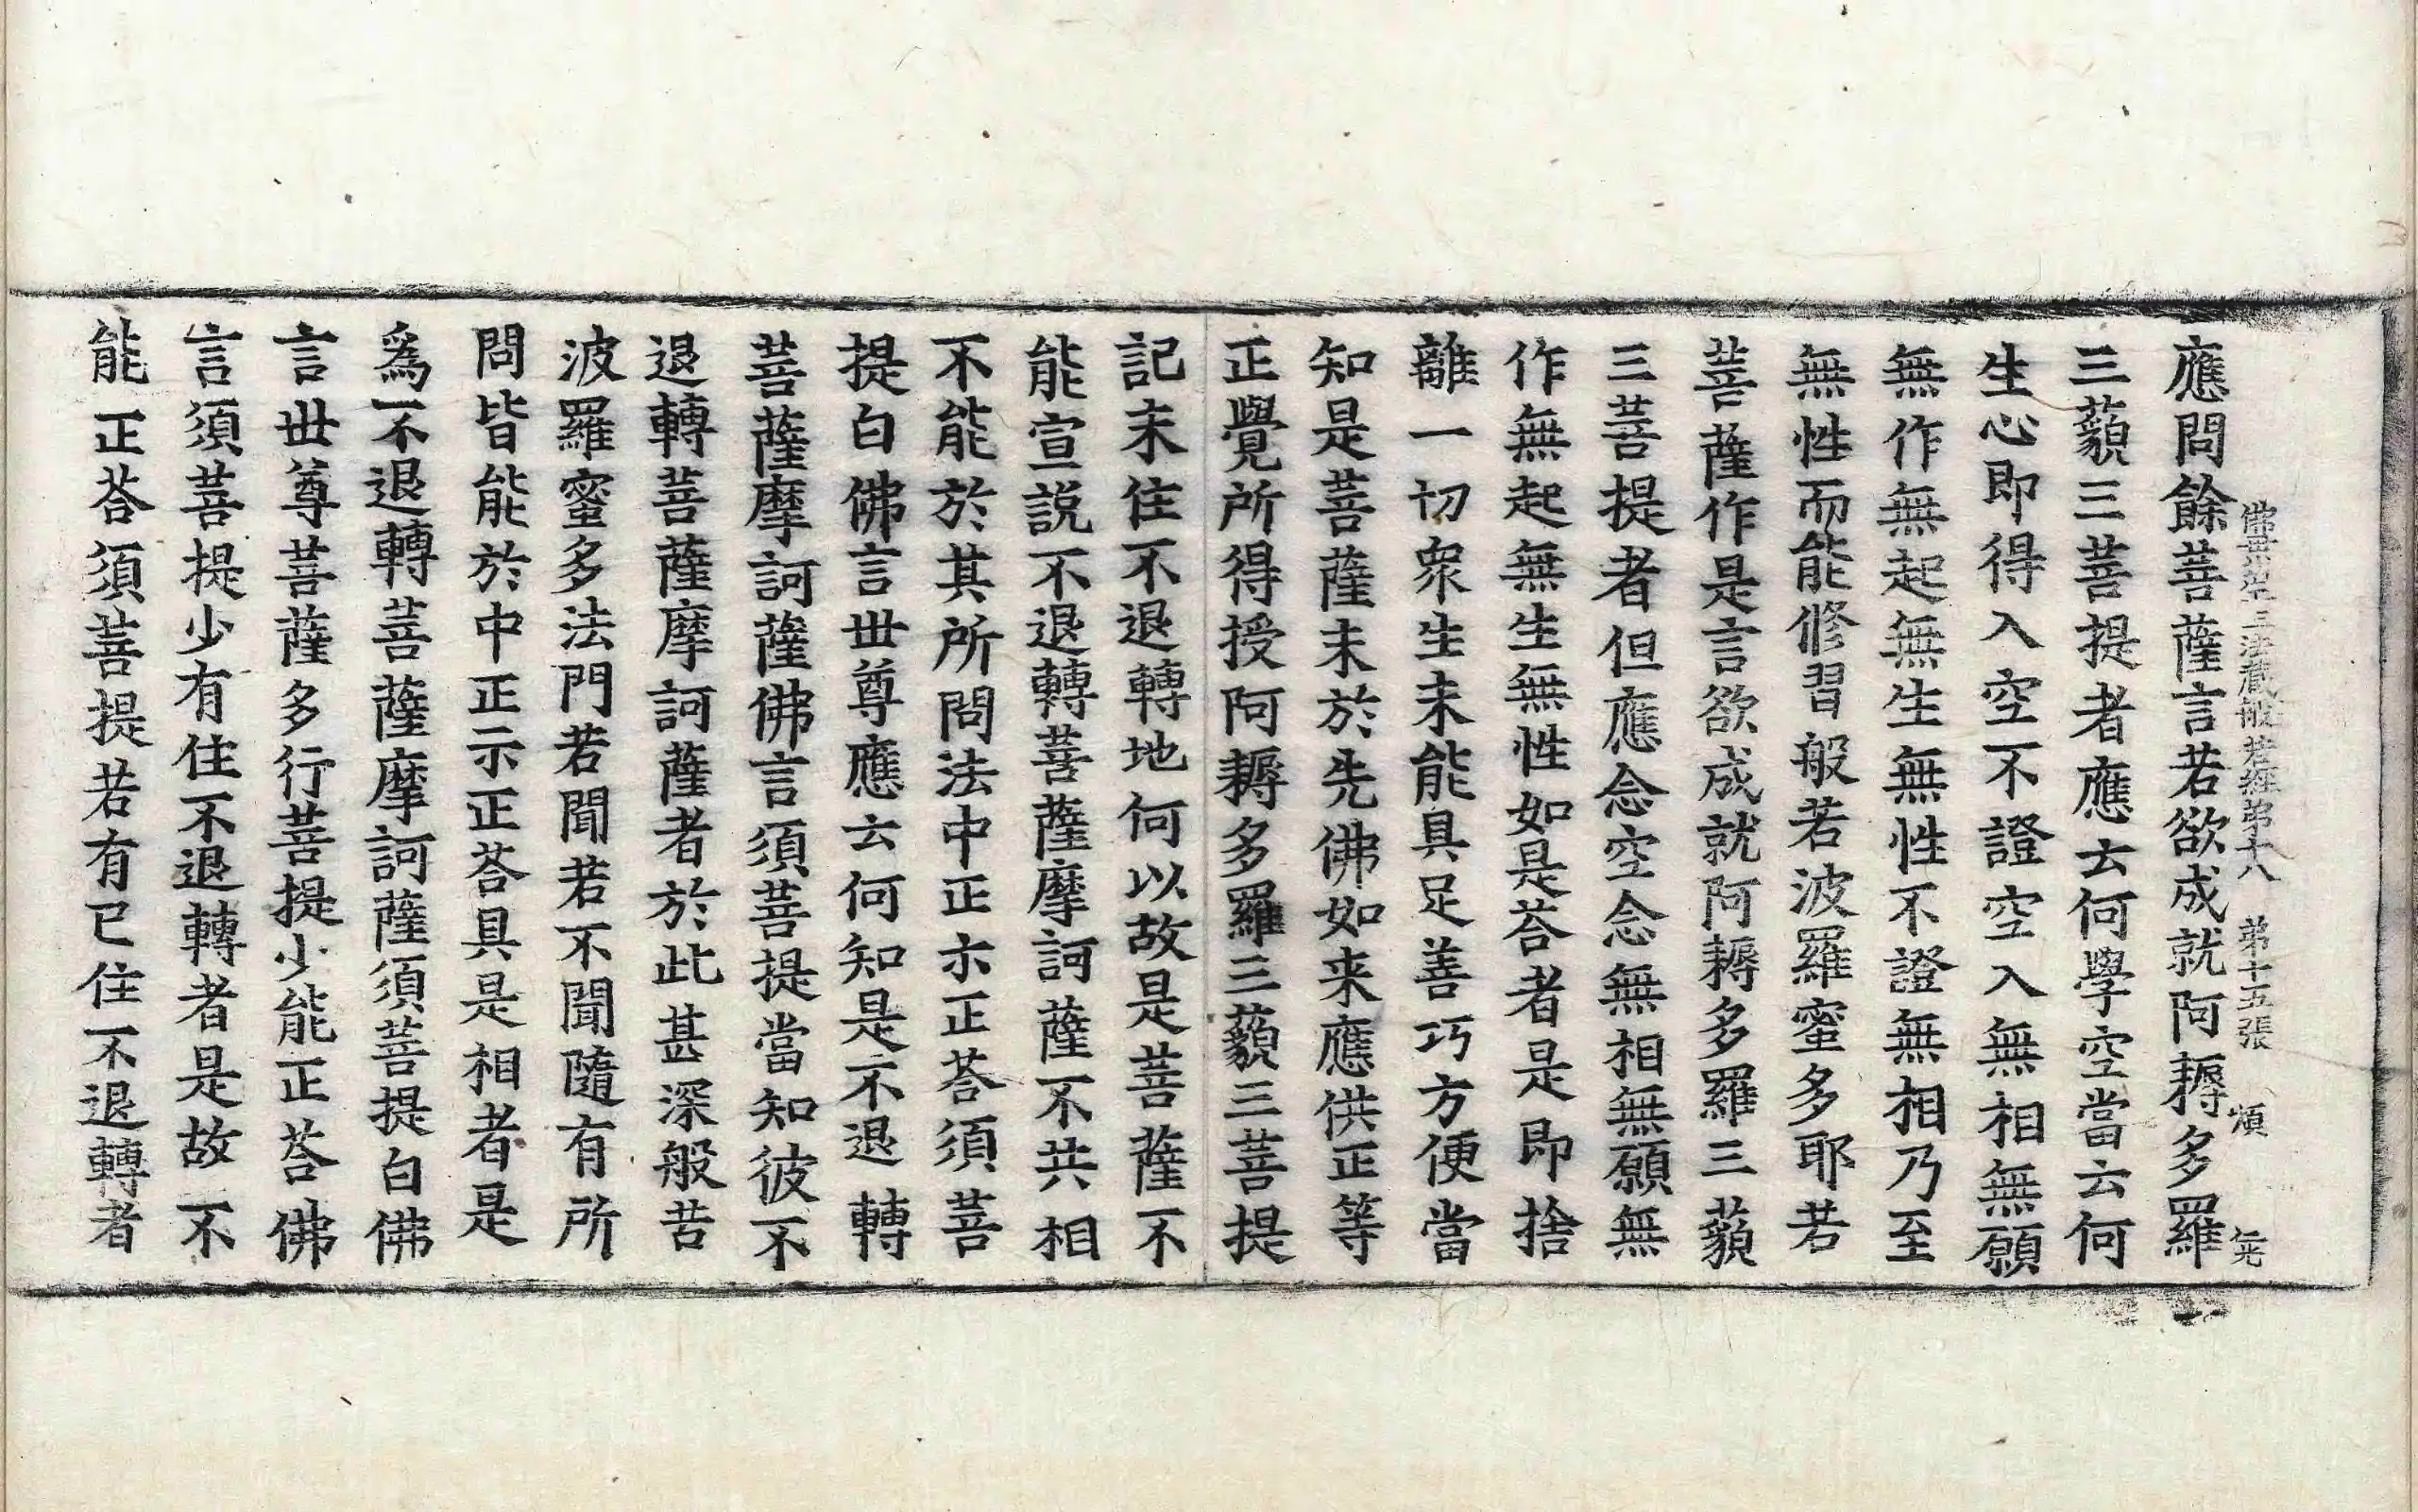 應問餘菩薩言若欲成就阿耨多羅
佛母出生三法藏般若經第十八 第十五張 煩
三藐三菩提者應云何學空當云何
生心即得入空不證空入無相無願
無作無起無生無性不證無相乃至
無性而能修習般若波羅蜜多耶若
菩薩作是言欲成就阿耨多羅三藐
三菩提者但應念空念無相無願無
作無起無生無性如是荅者是即捨
離一切衆生未能具足善巧方便當
知是菩薩未於先佛如来應供正等
正覺所得授阿耨多羅三藐三菩提
記未住不退轉地何以故是菩薩不
能宣説不退轉菩薩摩訶薩不共相
不能於其所問法中正示正荅須菩
提白佛言世尊應云何知是不退轉
菩薩摩訶薩佛言須菩提當知彼不
退轉菩薩摩訶薩者於此甚深般若
波羅蜜多法門若聞若不聞隨有所
問皆能於中正示正荅具是相者是
爲不退轉菩薩摩訶薩須菩提白佛
言世尊菩薩多行菩提少能正荅佛
言須菩提少有住不退轉者是故不
能正荅須菩提若有已住不退轉者